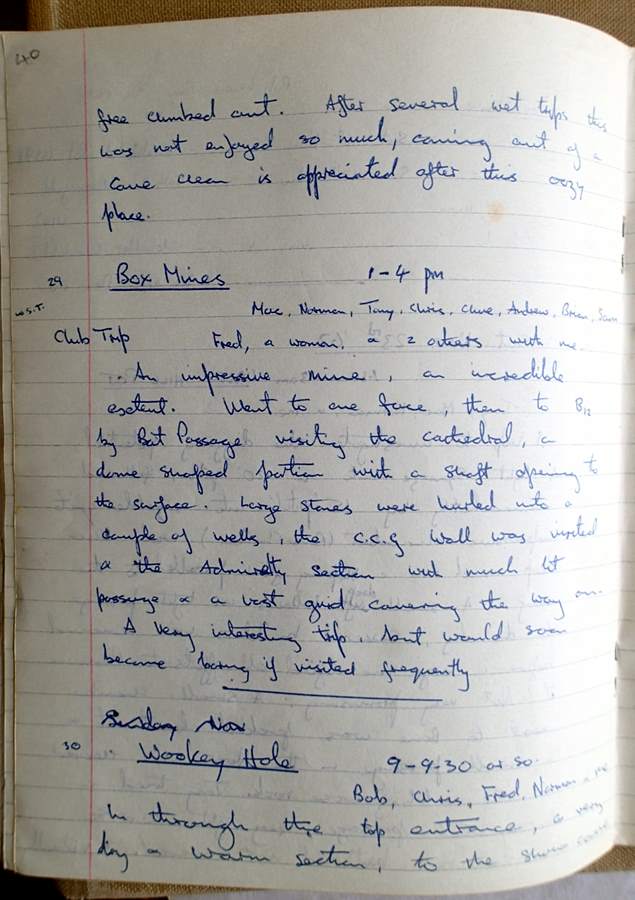 40
free climbed out. After several wet trips this
was not enjoyed so much, coming out of a
cave clean is appreciated after this oozy
place.
29 Box Mines 1-4 pm
W.S.T. Mac, Norman, Tony, Chris, Clive, Andrew, Brian,
Club Trip Fred, a woman, & 2 others with me.
An impressive mine, an incredible
extent. Went to one face, then to B12
by Bat Passage visiting the cathedral, a
dome shaped portion with a shaft opening to
the surface. Large stones were hurled into a
couple of wells, the c.c.g Wall was visited
& the Admiralty section with much lit
passage & a vast grid door covering the way on.
A very interesting trip, but would soon
become boring if visited frequently
Sunday Nov
30 Wookey Hole 9-9.30 or so.
Bob, Chris, Fred, Norman & me
In through the top entrance, a very
dry & warm section, to the show cave